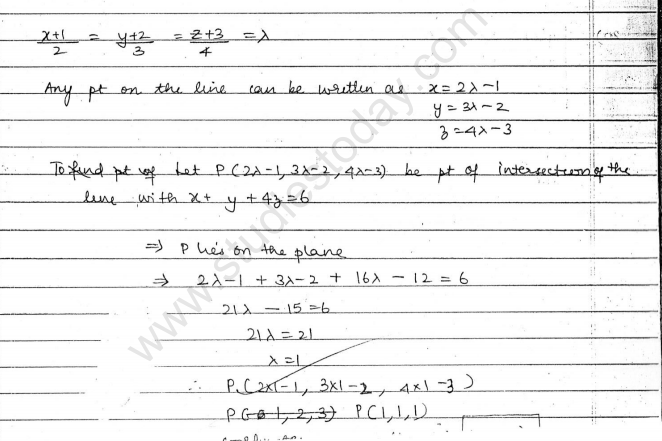 x+1/2 = y+2/3 = z+3/4 = λ
Any pt on the line can be written as x = 2λ-1
y = 3λ-2
z = 4λ-3
To find pt of Let P (2λ-1, 3λ-2, 4λ-3) be pt of intersection of the
line with x+ y +4z=6
⇒ P lies on the plane
⇒ 2λ-1 + 3λ-2 + 16λ - 12 = 6
21λ - 15 = 6
21λ = 21
λ = 1
∴ P (2x1-1, 3x1-2, 4x1-3)
P(1, 2, 3) P(1,1,1)
www.studiestoday.com